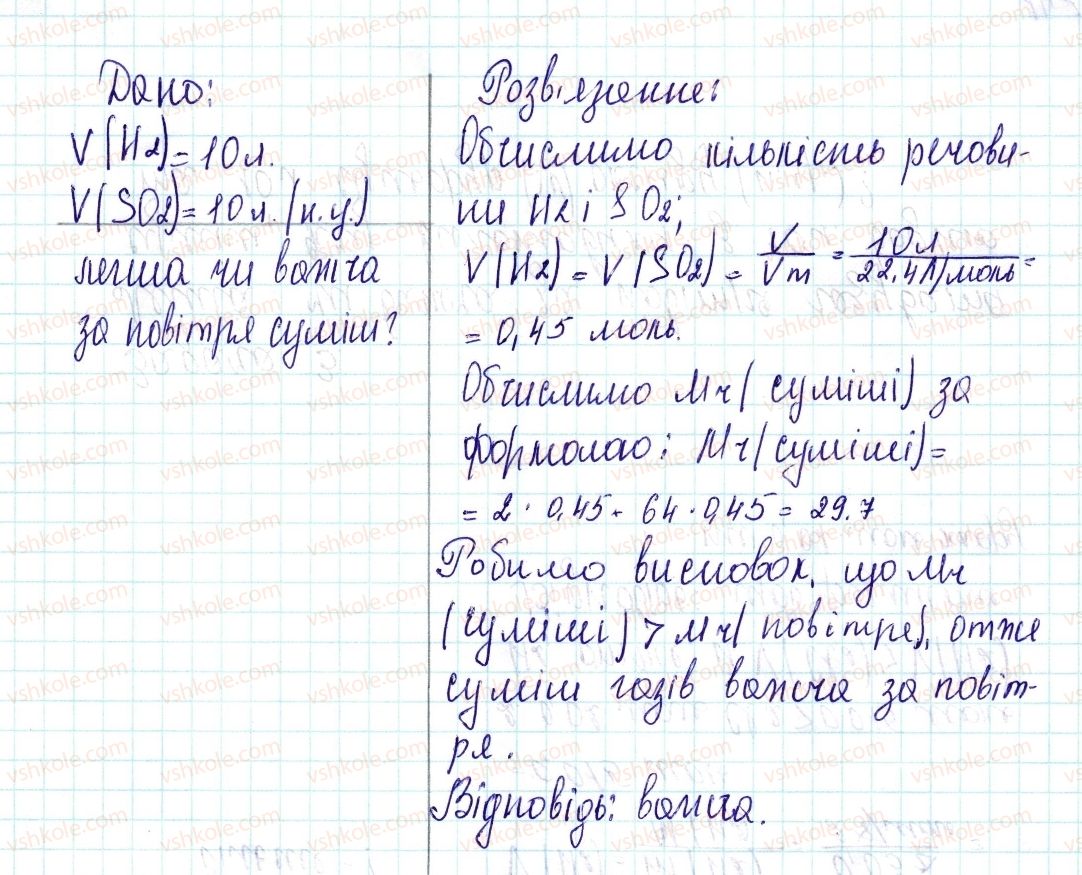 Дано:
V(H2)=10л.
V(SO2)=10л.(н.у.)
легша чи важча
за повітря суміш?
Розв'язання:
Обчислимо кількість речови-
ни H2 і SO2;
V(H2) = V(SO2) = V/Vm = 10л/22,4л/моль =
= 0,45 моль.
Обчислимо Mr(суміші) за
формолаю: Mr(суміші)=
= 2 · 0,45 + 64 · 0,45 = 29.7
Робимо висновок, що Mr
(суміші) > Mr(повітря), отже
суміш газів важча за повіт-
ря.
Відповідь: важча.
vshkole.com